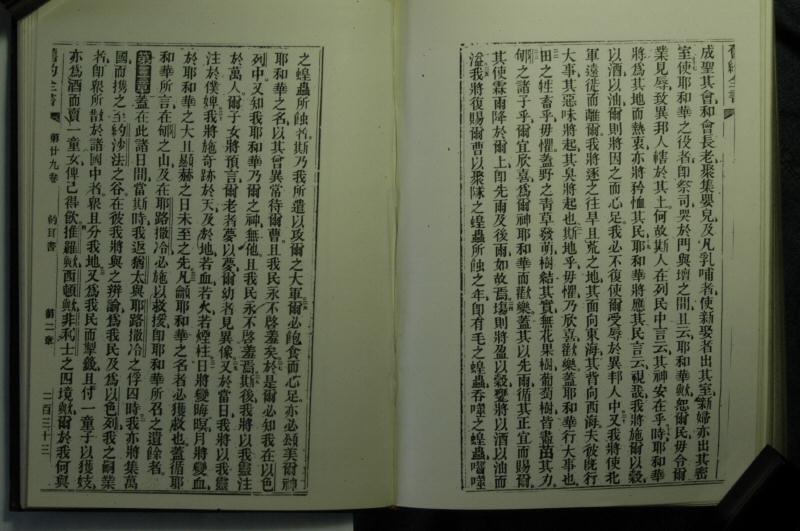 舊約全書
成聖其會和會長老聚集嬰兒及凡乳哺者使新娶者出其室新婦亦出其密
室使耶和華之役者即祭司哭於門與壇之間且云耶和華歟恕爾民毋令爾
業見辱致異邦人轄於其上何故斯人在列民中言云其神安在乎時耶和華
將爲其地而熱衷亦將矜恤其民耶和華將應其民言云視哉我將施爾以穀
以酒以油爾則將因之而心足我必不復使爾受辱於異邦人中又我將使北
軍遠徙而離爾我將逐之往旱且荒之地其面向東海其背向西海夫彼旣行
大事其惡味將起其臭將起也斯地乎毋懼乃欣喜歡樂蓋耶和華行大事也
田之牲畜乎毋懼蓋野之青草發萌樹結其實無花果樹葡萄樹皆盡其力
郇之諸子乎爾宜欣喜爲爾神耶和華而歡樂蓋其以先雨循其正宜而賜爾
其使霖雨降於爾上即先雨及後雨如故焉塲則將盈以穀甕將以酒以油而
溢我將復賜爾曹以聚隊之蝗蟲所蝕之年即有毛之蝗蟲吞噬之蝗蟲囓噬
之蝗蟲所蝕者斯乃我所遣以攻爾之大軍爾必飽食而心足亦必頌美爾神
耶和華之名以其曾異常待爾曹且我民永不啓羞矣於是爾必知我在以色
列中又知我耶和華乃爾之神無他且我民永不啓羞焉斯後我將以我靈注
於萬人爾子女將預言爾老者夢以夢爾幼者見異像又於當日我將以我靈
注於僕婢我將施奇跡於天及於地若血若火若煙柱日將變晦暝月將變血
於耶和華之大且顯赫之日未至之先凡籲耶和華之名者必獲救也蓋循耶
和華所言在郇之山及在耶路撒冷必施以救援即耶和華所召之遺餘者
第三章蓋在此諸日間當斯時我返猶太與耶路撒冷之俘囚時我亦將集萬
國而攜之至約沙法之谷在彼我將與之辯論爲我民及爲以色列我之嗣業
者即衆所散於諸國中者衆且分我地又爲我民而掣籤且付一童子以獲妓
亦爲酒而賣一童女俾己得飲推羅歟西頓歟非利士之四境歟爾於我何與
舊約全書 第廿九卷 約耳書 第二章 二百三十三